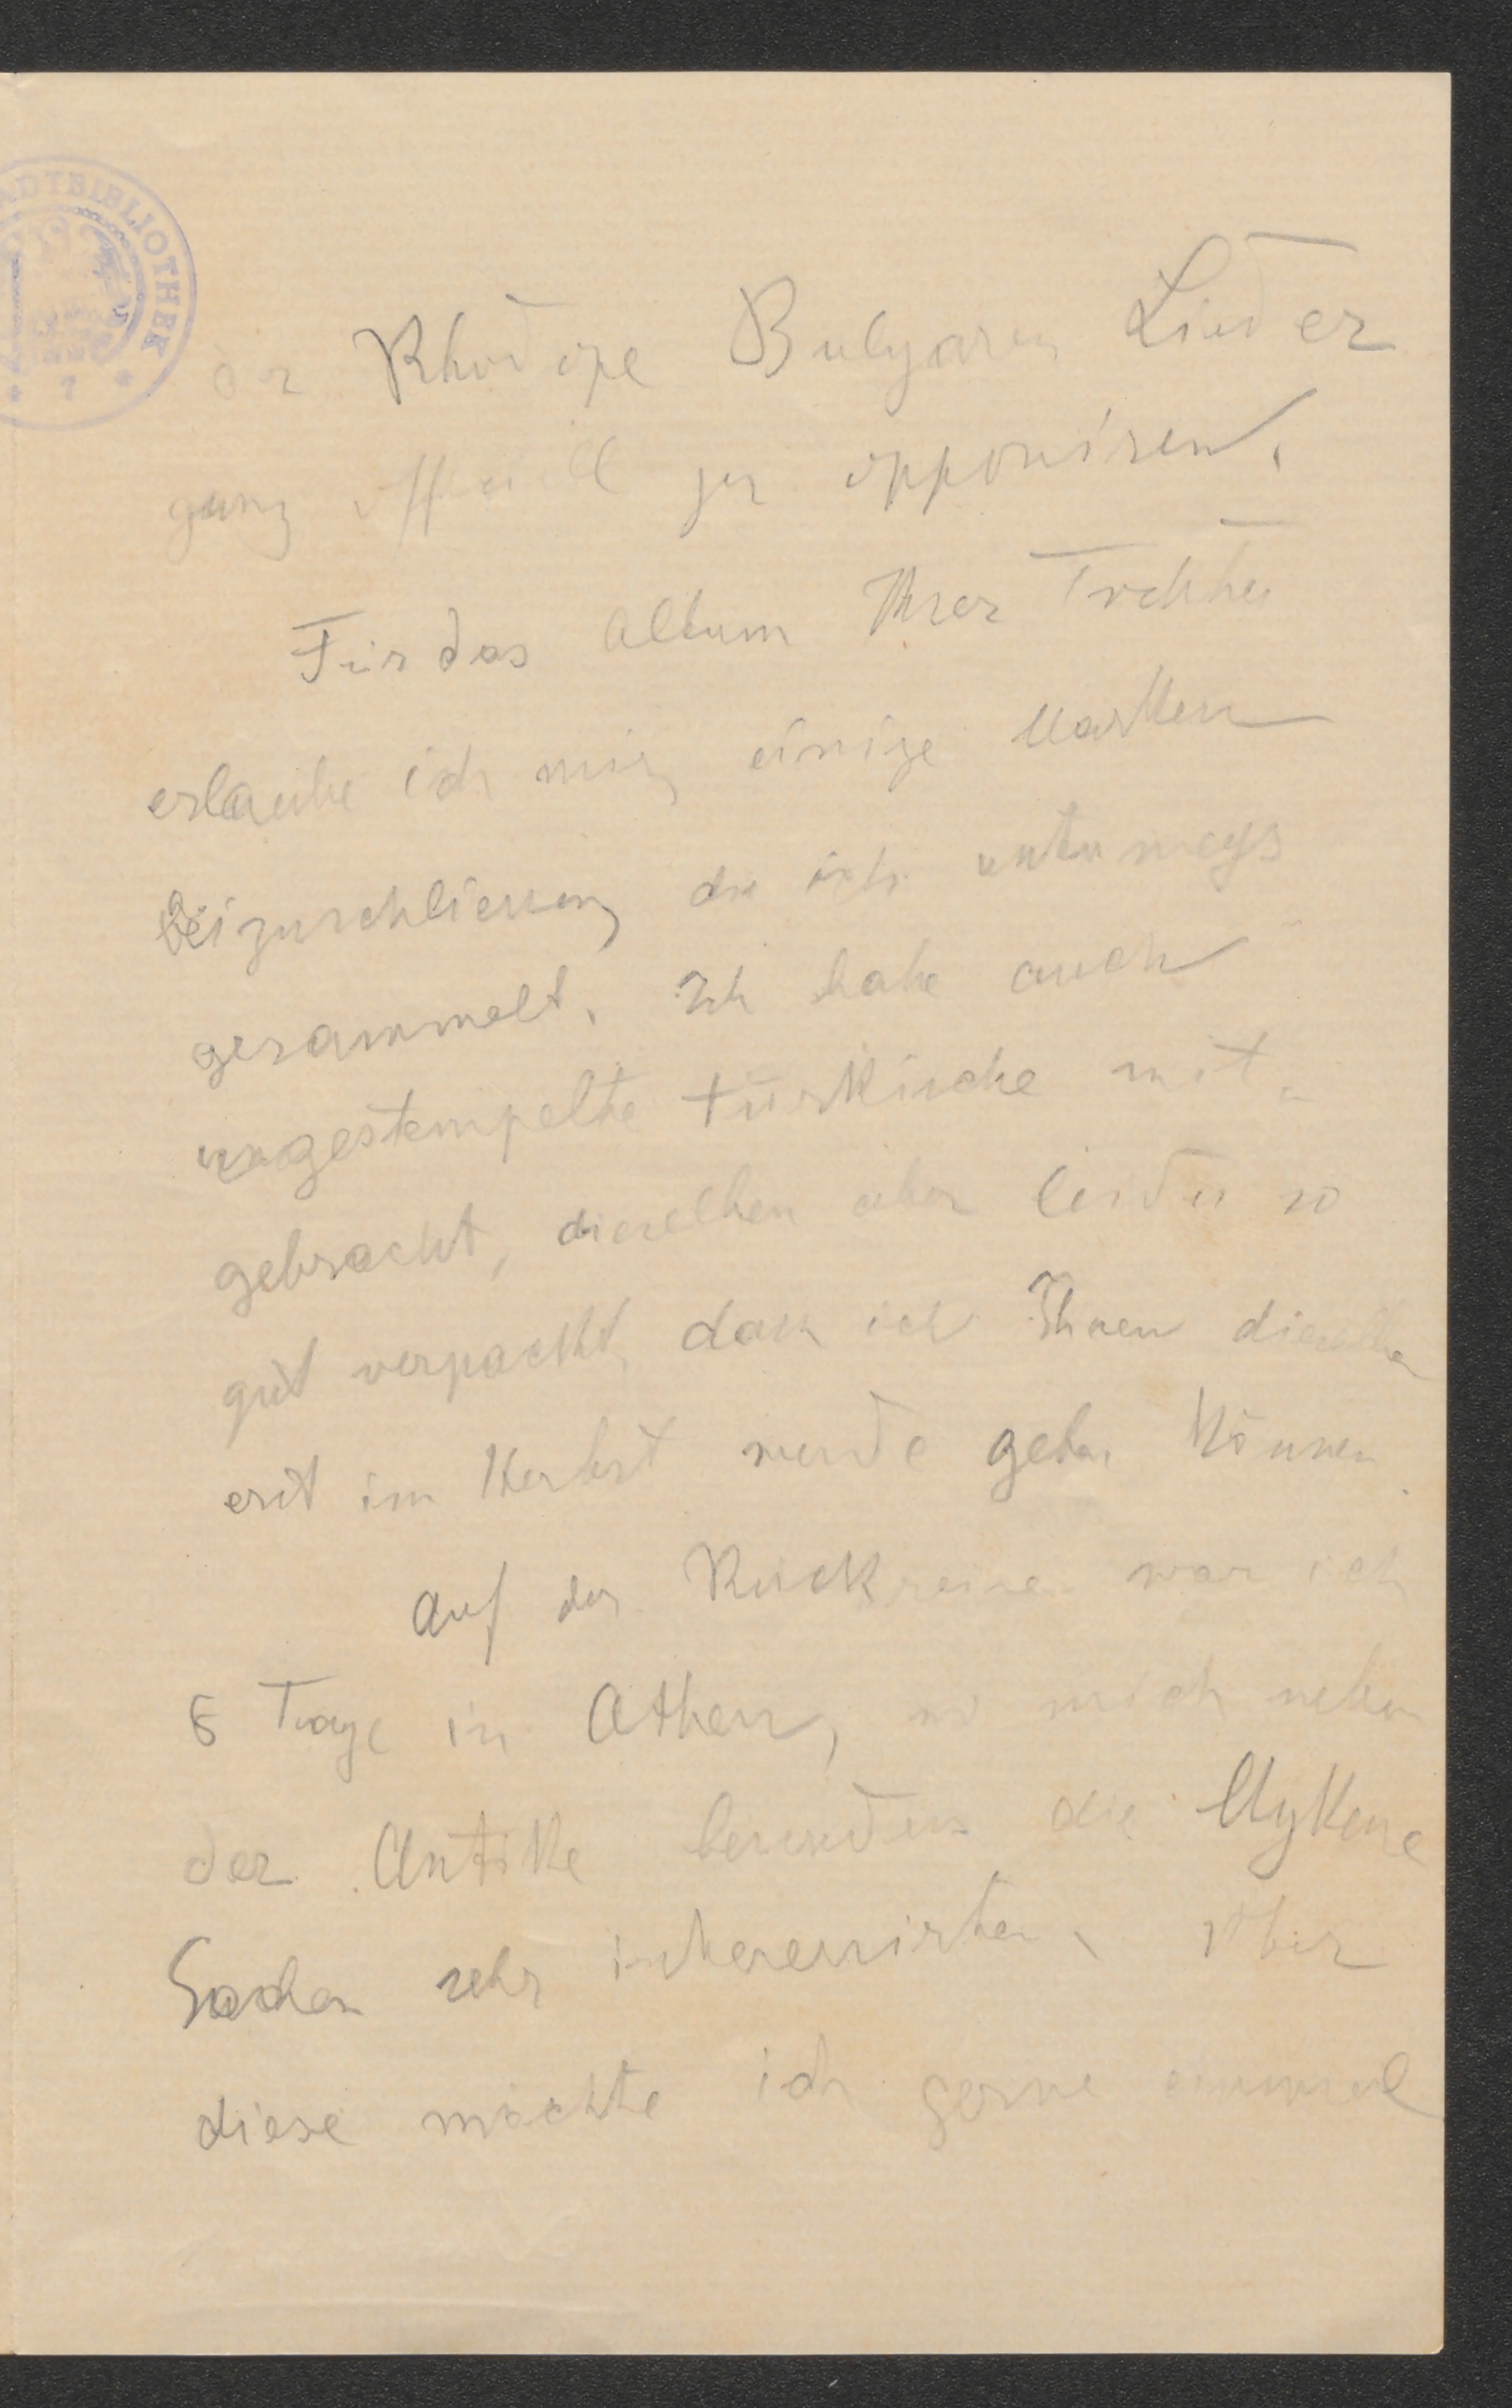 STADTBIBLIOTHEK
* 7 *
der Rhodope Bulgaren Lieder
ganz officiell zu opponiren.
Für das Album Ihrer Tochter
erlaube ich mir, einige Marken
beizuschliessen, die ich unterwegs
gesammelt. Ich habe auch
ungestempelte türkische mit-
gebracht, dieselben aber leider so
gut verpackt, dass ich Ihnen dieselben
erst im Herbst werde geben können.
Auf der Rückreise war ich
6 Tage in Athen, wo mich neben
der Antike besonders die Mykene
Sachen sehr interessirten. Über
diese möchte ich gerne einmal